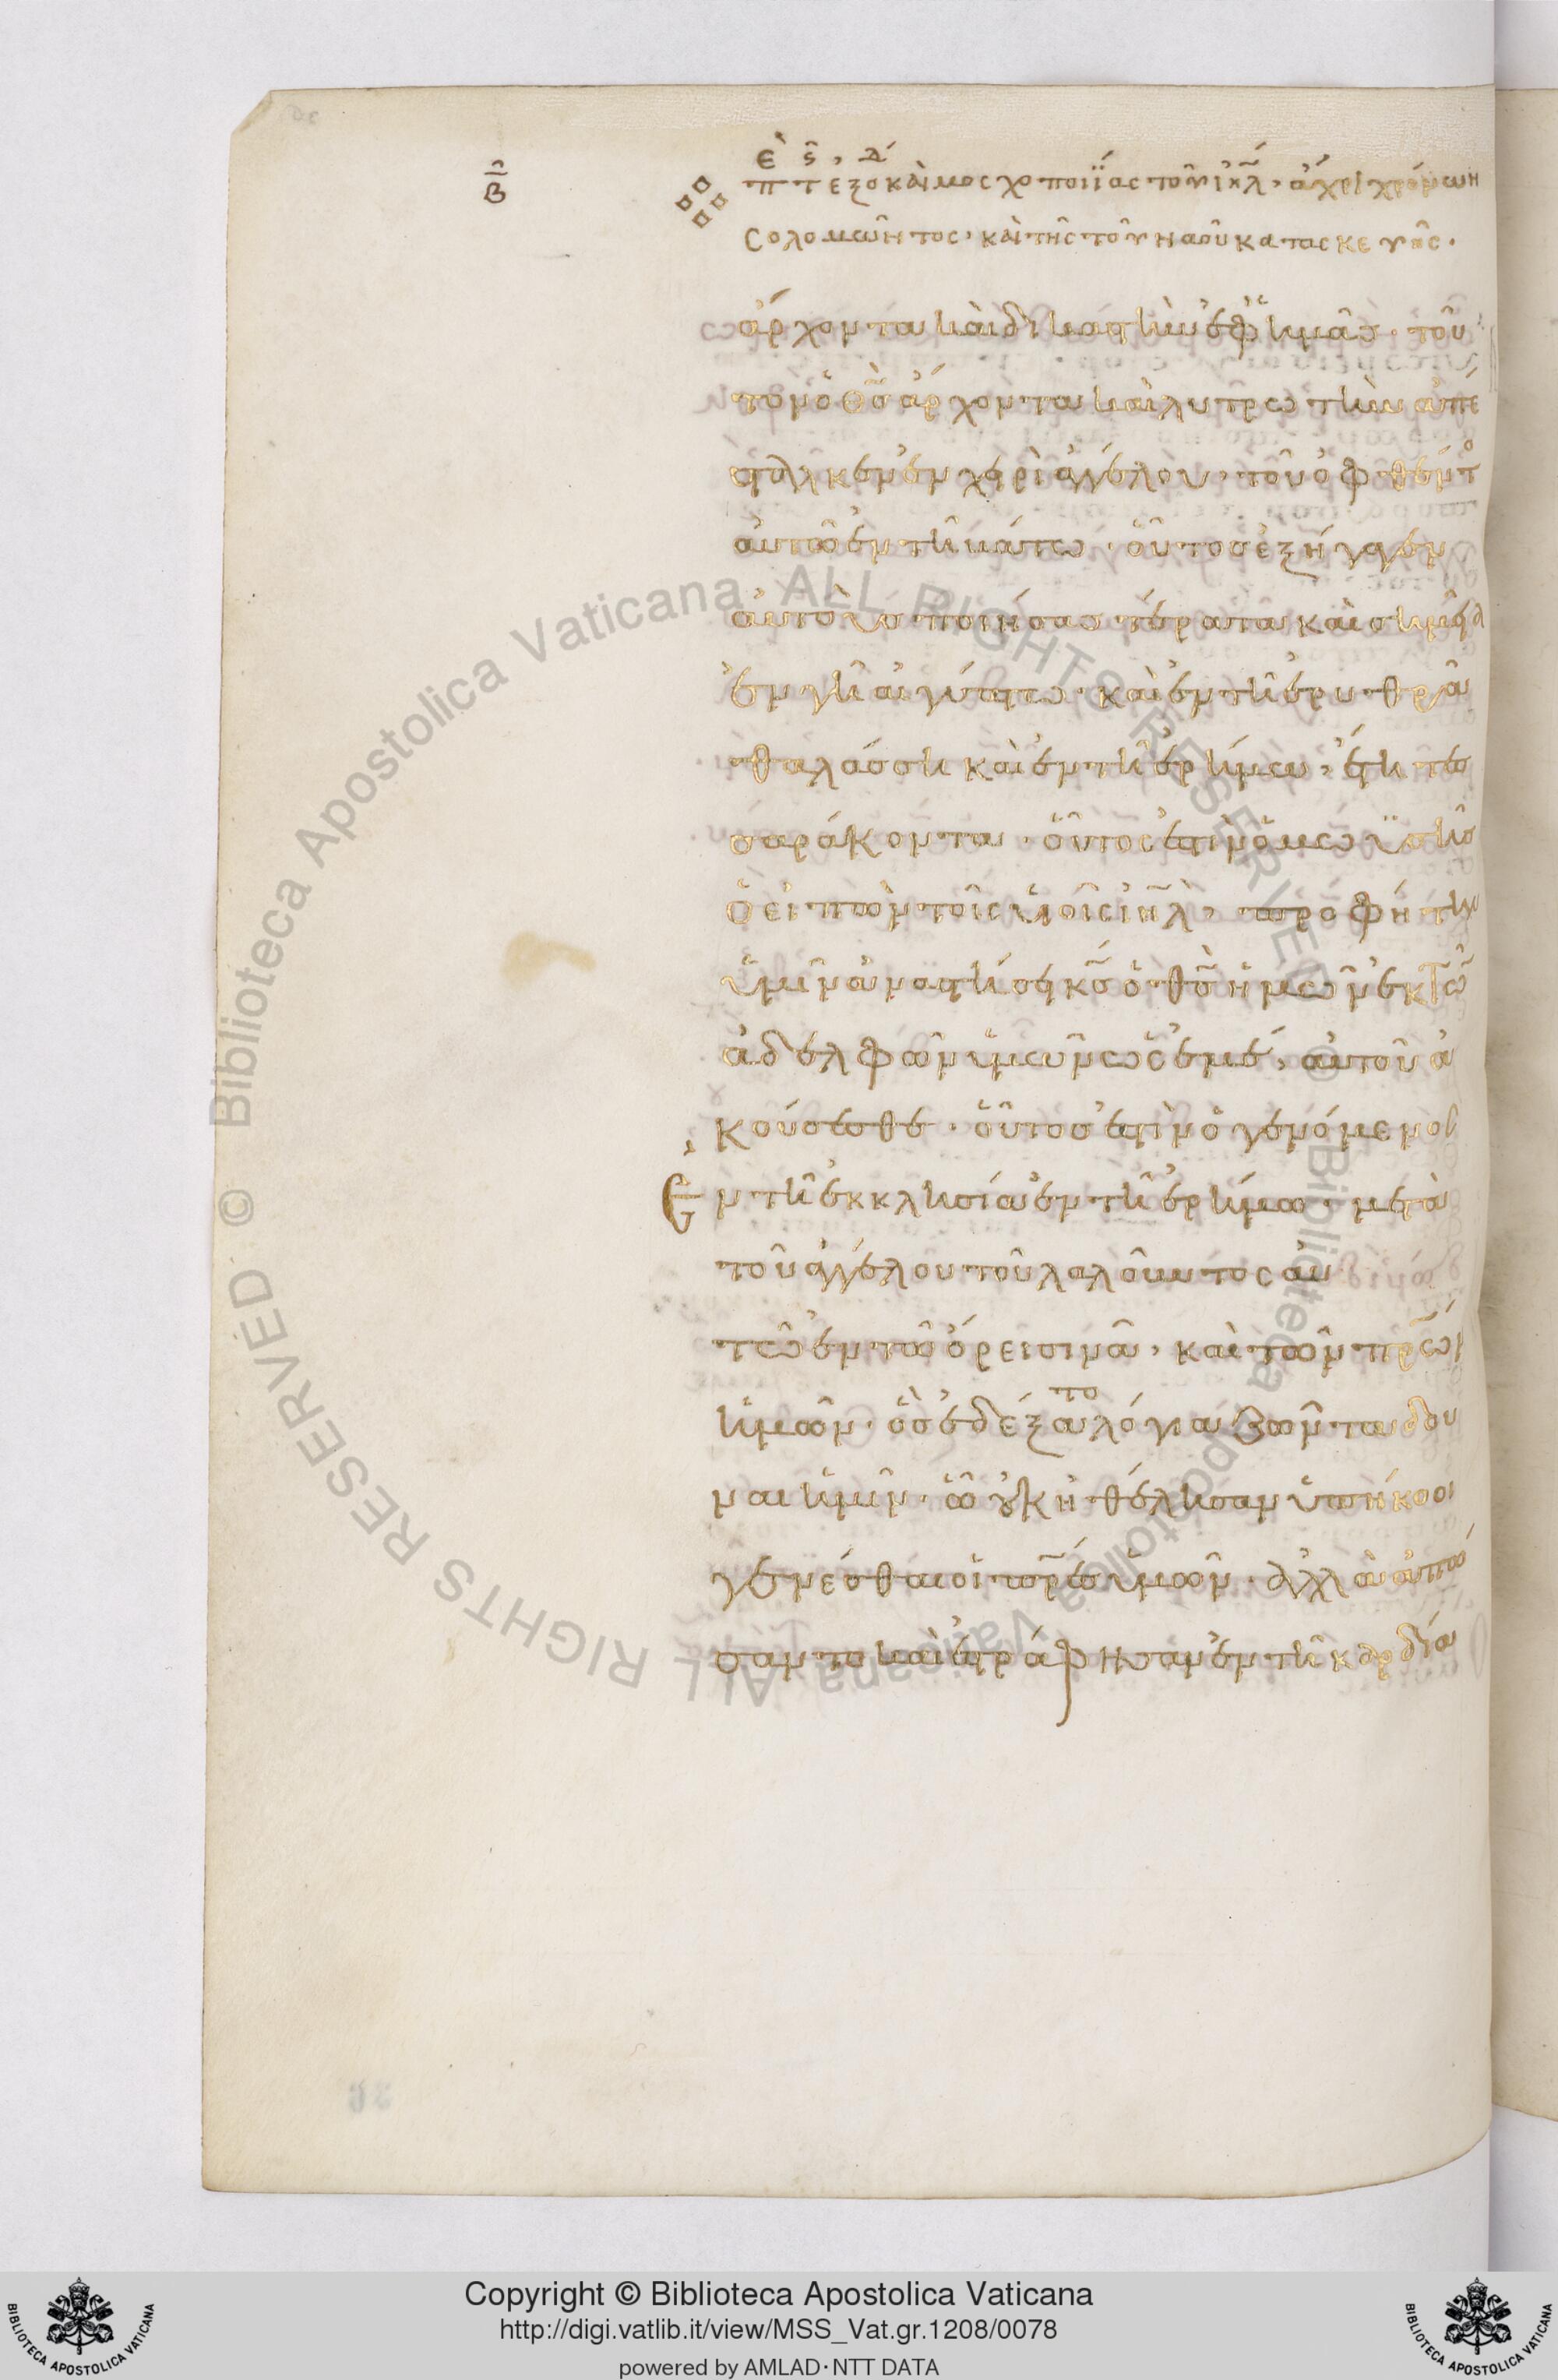 β
π τ εξο και μοσχοποιΐας τοῦ ιηλ, ἄχρι χρόνων
Σολομῶντος· καὶ τῆς τοῦ ναοῦ κατασκευῆς·
ἄρχοντα καὶ δικαστὴν ἐφ ἡμᾶς· τοῦ
τον ὁ θς ἄρχοντα καὶ λυτρωτὴν ἀπέ
σταλκεν ἐν χειρὶ ἀγγέλου· τοῦ ὀφθέντο
αὐτῶ ἐν τῆ βάτω· οὗτος ἐξήγαγεν
αὐτοὺς ποιήσας τέρατα καὶ σημεῖα
ἐν γῆ αἰγύπτω· καὶ ἐν τῆ ἐρυθρᾶ
θαλάσση καὶ ἐν τῆ ἐρήμω, ἔτη τεσ
σαράκοντα· οὗτος ἐστὶν ὁ μωϋσῆς
ὁ εἰπὼν τοῖς υἱοῖς ιηλ, προφήτην
ὑμῖν ἀναστήσει κς ὁ θς ἡμῶν ἐκ τῶ
ἀδελφῶν ὑμῶν ὡς ἐμέ, αὐτοῦ ἀ
κούσεσθε· οὗτος ἐστὶν ὁ γενόμενος
Ἐν τῆ ἐκκλησία ἐν τῆ ἐρήμω· μετὰ
τοῦ ἀγγέλου τοῦ λαλοῦντος αὐ
τῶ ἐν τῶ ὄρει σινᾶ, καὶ τῶν πρων
ἡμῶν· ὃς ἐδέξατο λόγια ζῶντα δοῦ
ναι ἡμῖν· ὧ οὐκ ἠθέλησαν ὑπήκοοι
γενέσθαι οἱ πρες ὑμῶν· ἀλλὰ ἀπώ
σαντο καὶ ἐστράφησαν ἐν τῆ καρδία
Copyright © Biblioteca Apostolica Vaticana
http://digi.vatlib.it/view/MSS_Vat.gr.1208/0078
powered by AMLAD·NTT DATA